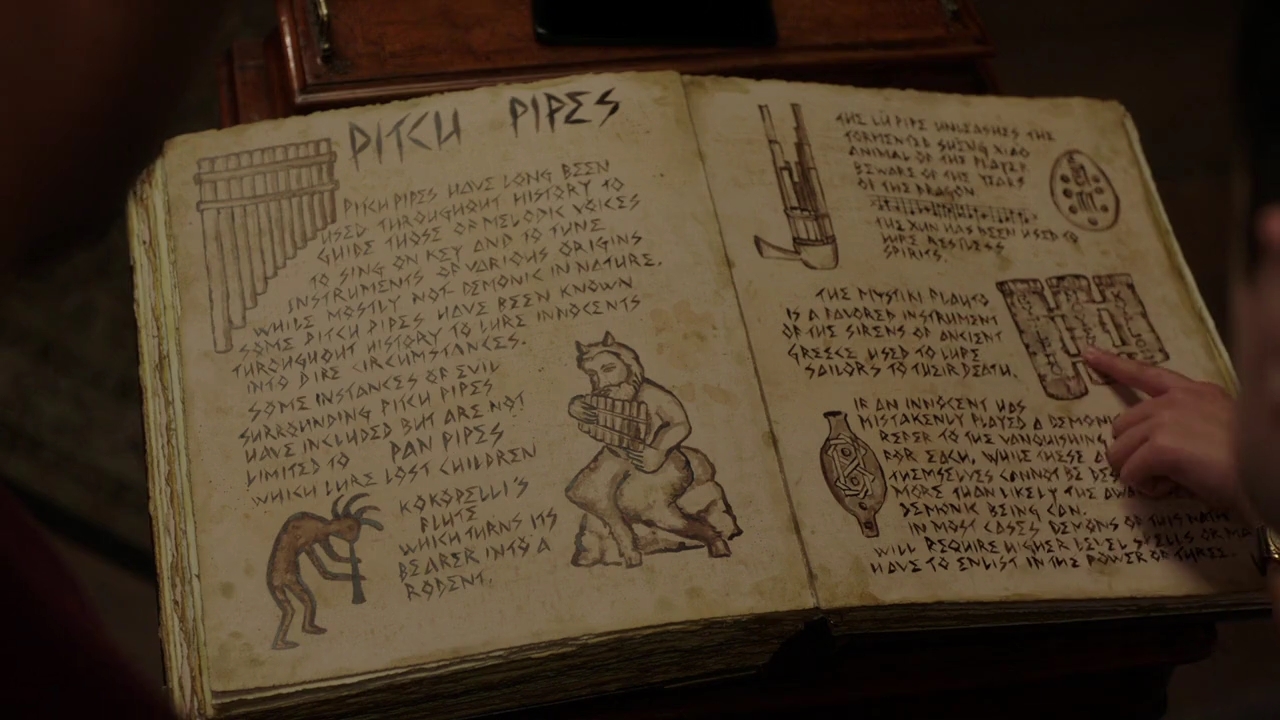 PITCH PIPES
PITCH PIPES HAVE LONG BEEN
USED THROUGHOUT HISTORY TO
GUIDE THOSE OF MELODIC VOICES
TO SING ON KEY AND TO TUNE
INSTRUMENTS OF VARIOUS ORIGINS
WHILE MOSTLY NOT DEMONIC IN NATURE,
SOME PITCH PIPES HAVE BEEN KNOWN
THROUGHOUT HISTORY TO LURE INNOCENTS
INTO DIRE CIRCUMSTANCES.
SOME INSTANCES OF EVIL
SURROUNDING PITCH PIPES
HAVE INCLUDED BUT ARE NOT
LIMITED TO PAN PIPES
WHICH LURE LOST CHILDREN
KOKOPELLI'S
FLUTE
WHICH TURNS ITS
BEARER INTO A
RODENT.
THE LÜ PIPE UNLEASHES THE
TORMENTED SHENG XIAO
ANIMAL OF THE PLAYER
BEWARE OF THE YEARS
OF THE DRAGON
THE XUN HAS BEEN USED TO
LURE RESTLESS
SPIRITS.
THE MYSTIKI FLAUTO
IS A FAVORED INSTRUMENT
OF THE SIRENS OF ANCIENT
GREECE USED TO LURE
SAILORS TO THEIR DEATH.
IF AN INNOCENT HAS
MISTAKENLY PLAYED A DEMONIC
REFER TO THE VANQUISHING
FOR EACH, WHILE THESE
THEMSELVES CANNOT BE
MORE THAN LIKELY THE
DEMONIC BEING CAN.
IN MOST CASES DEMONS OF THIS
WILL REQUIRE HIGHER LEVEL SPELLS OR
HAVE TO ENLIST IN THE POWER OF THREE.